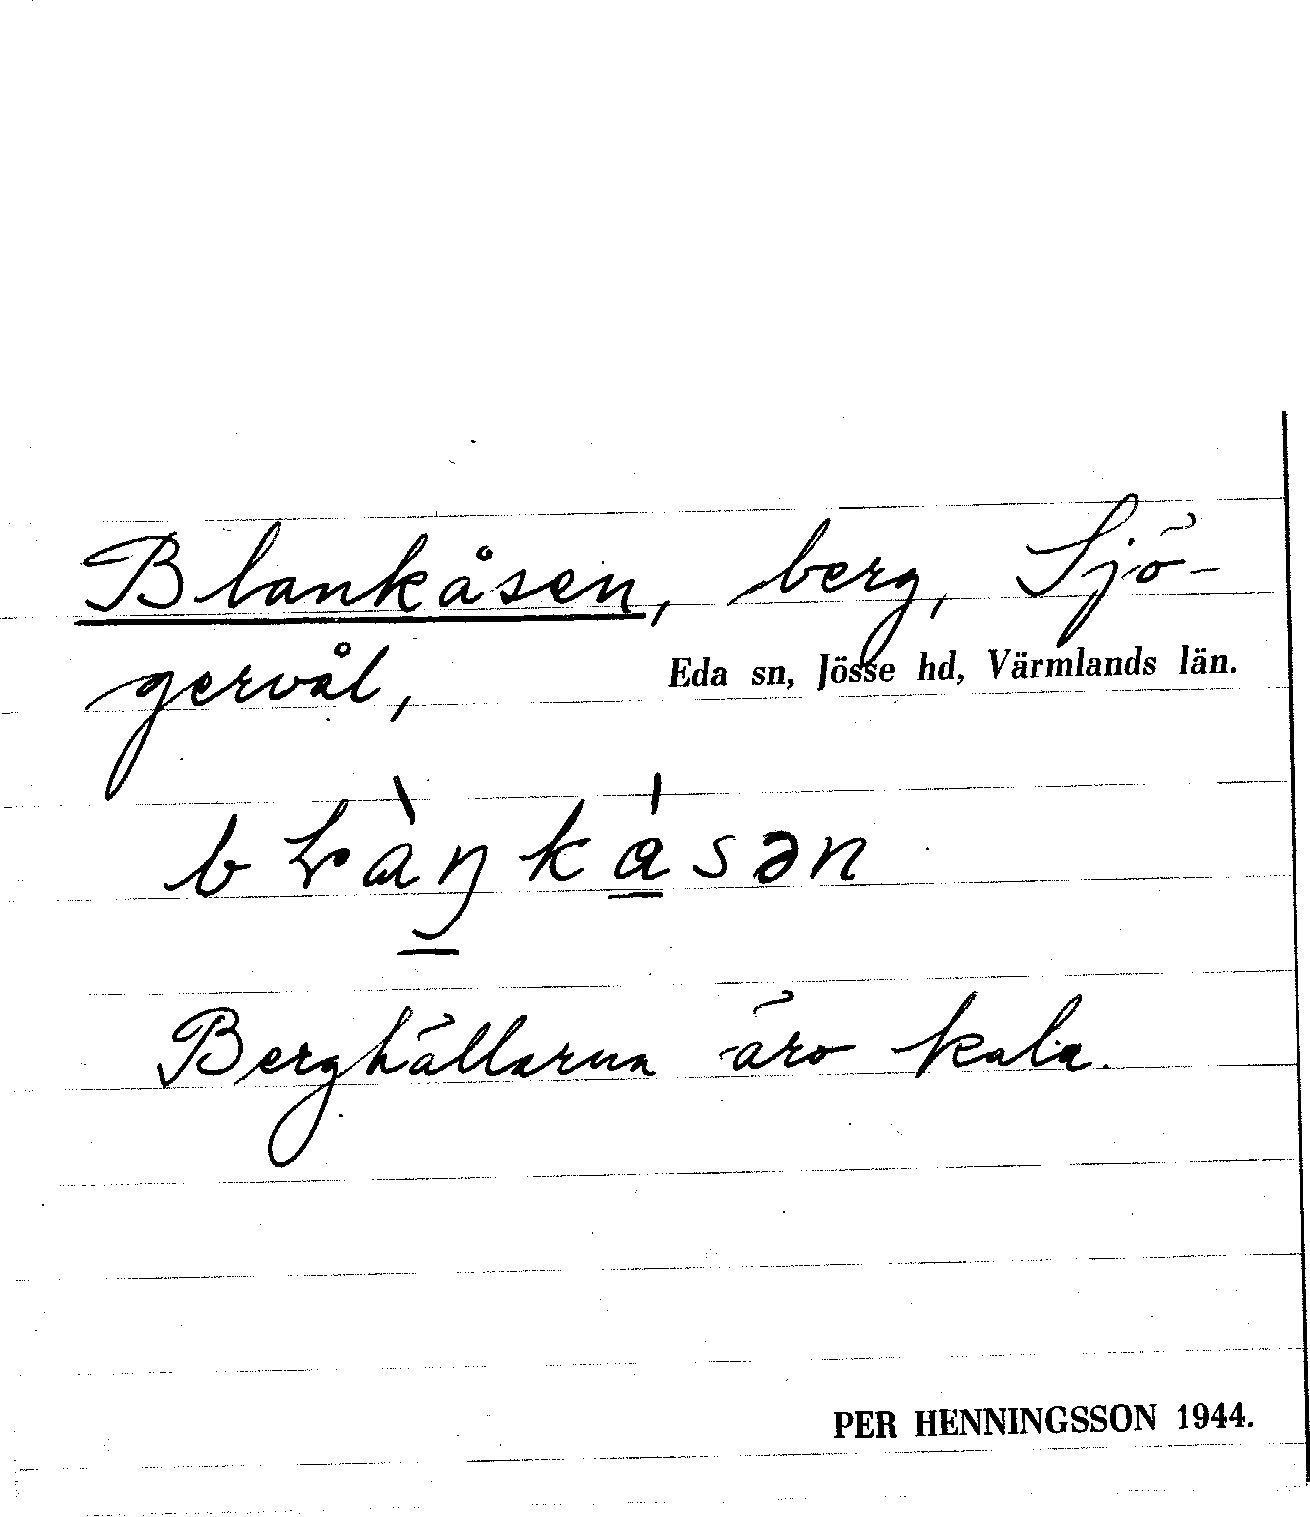 Blankåsen, berg, Sjö-
gervål,
Eda sn, Jösse hd, Värmlands län.
bɫàŋkásən
Berghällarna äro kala.
PER HENNINGSSON 1944.